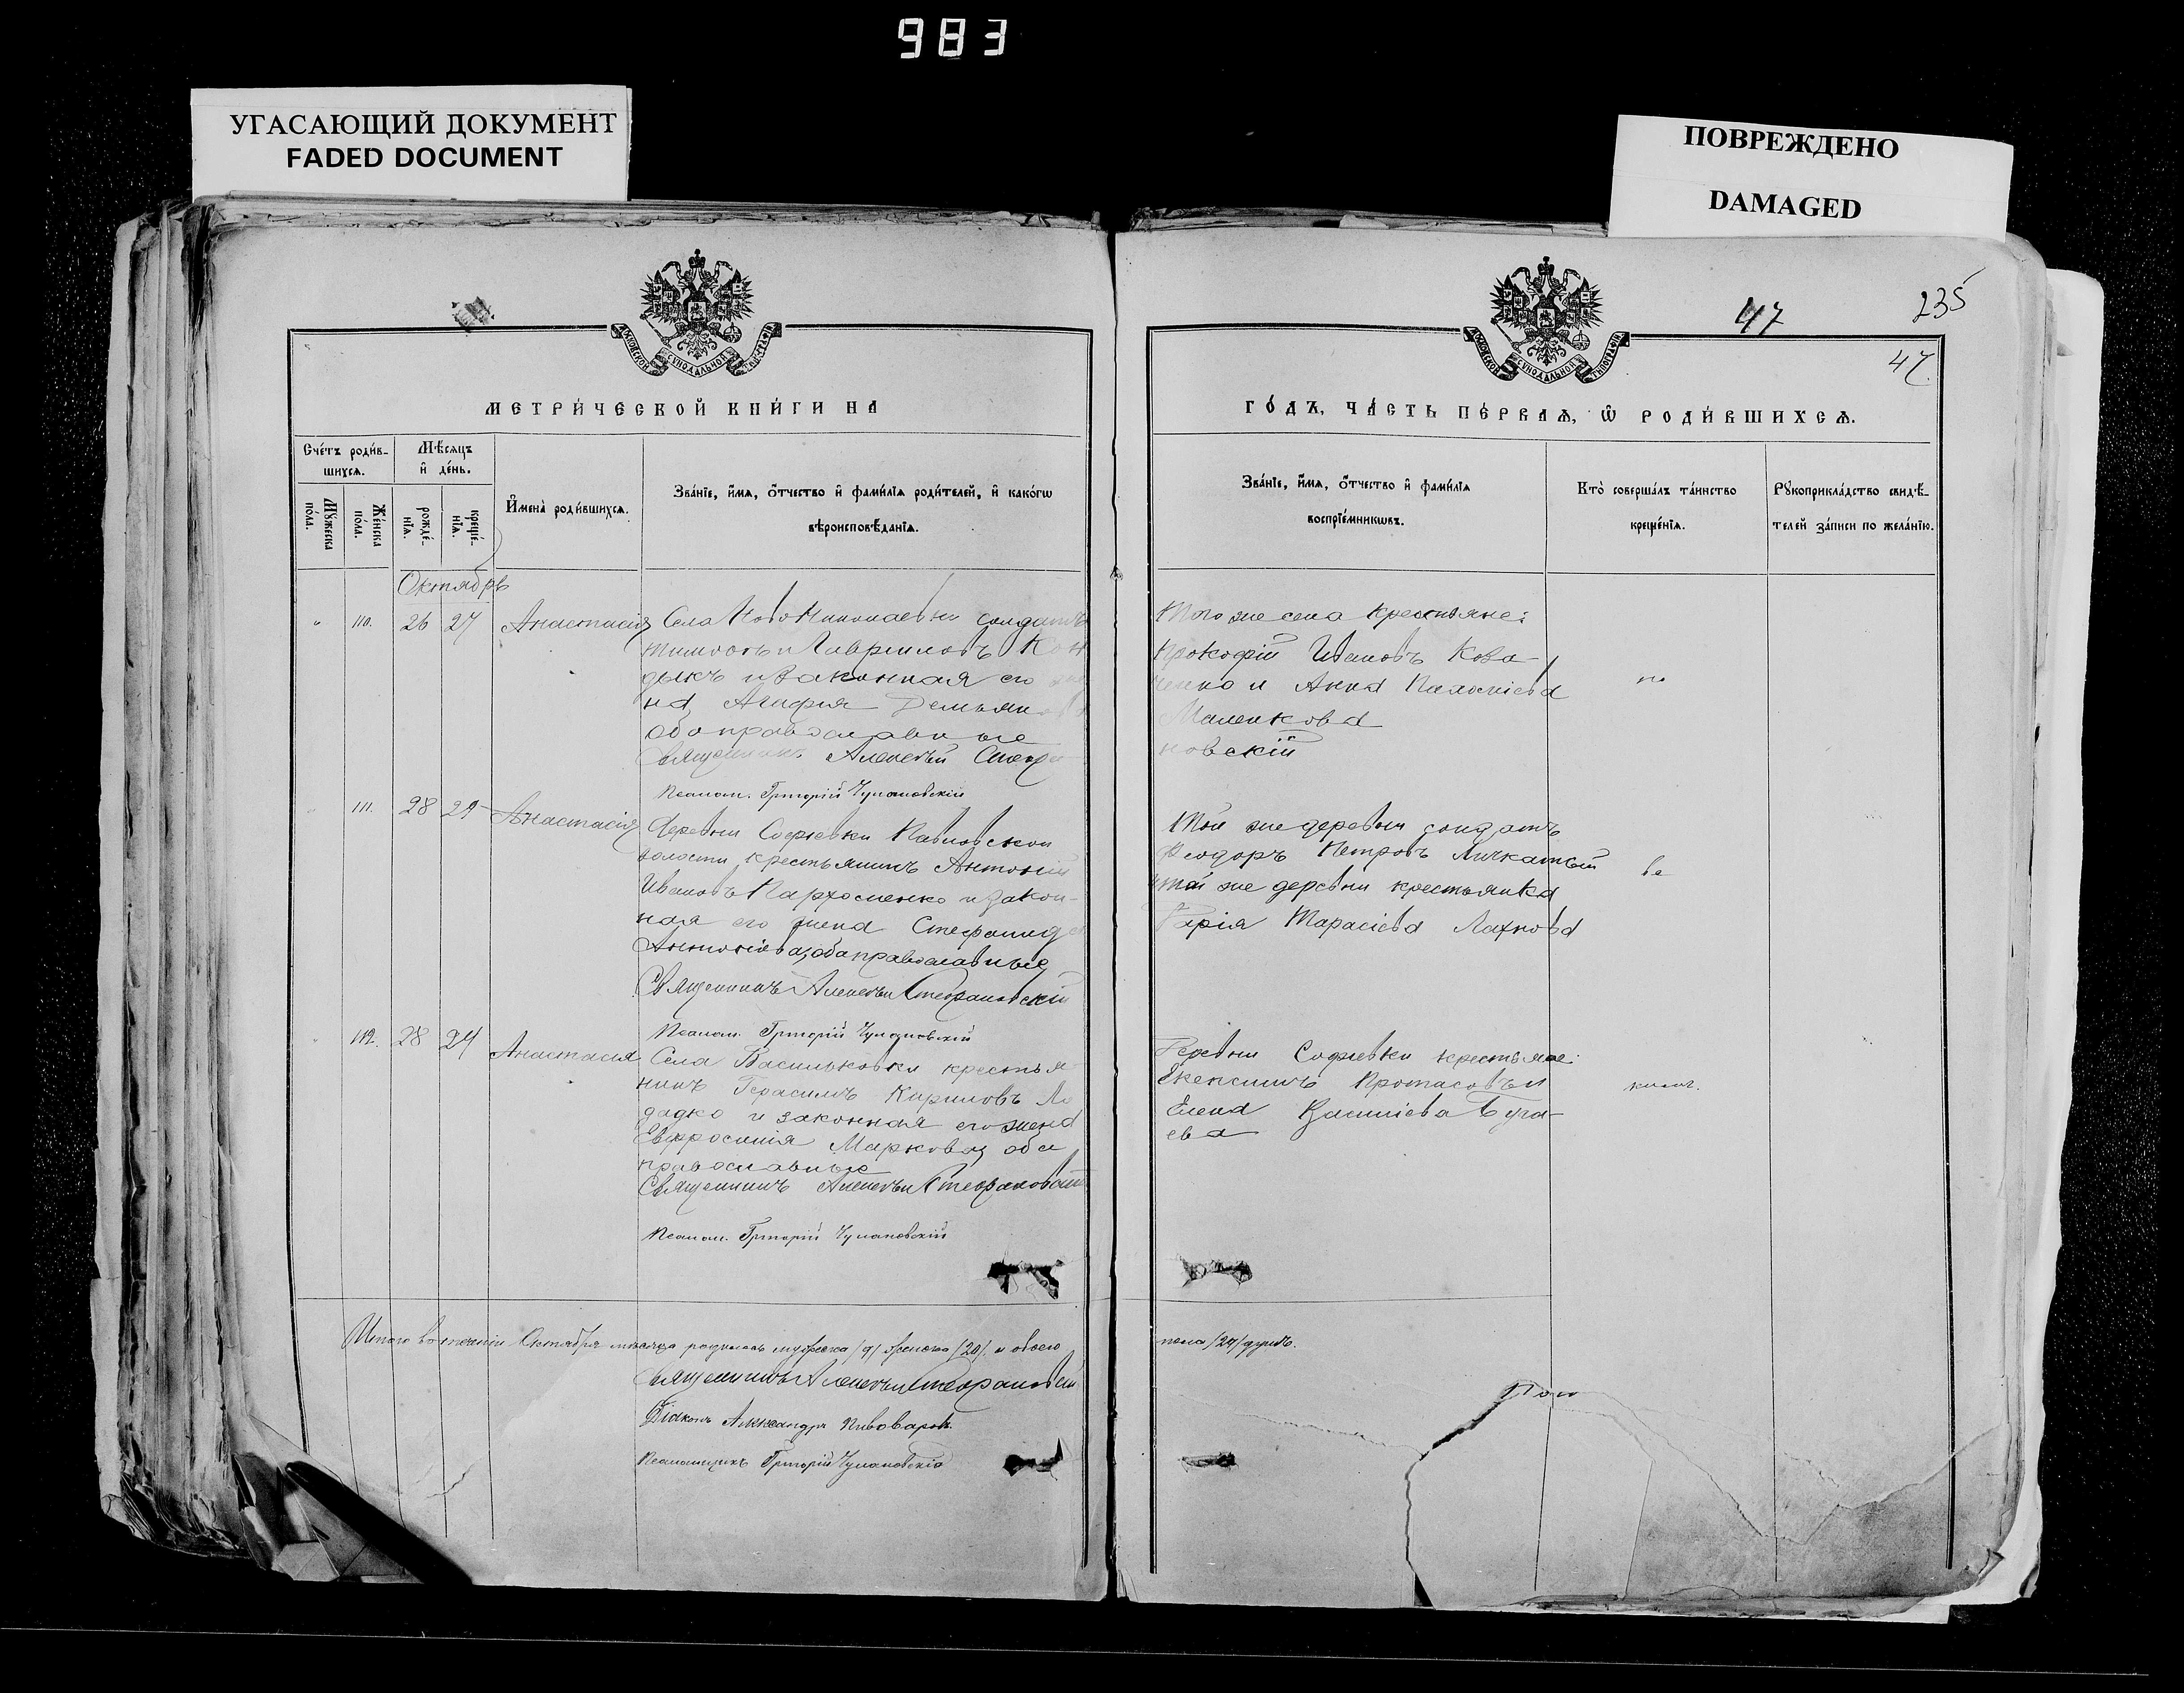 983
УГАСАЮЩИЙ ДОКУМЕНТ
FADED DOCUMENT
ПОВРЕЖДЕНО
DAMAGED
47
235
47
МОСКОВСКОЙ СѴНОДАЛЬНОЙ ТИПОГРАФІИ
МОСКОВСКОЙ СѴНОДАЛЬНОЙ ТИПОГРАФІИ
МЕТРИ́ЧЕСКОЙ КНИ́ГИ НА
ГО́ДЪ, ЧА́СТЬ ПЕ́РВАѦ, Ѿ РОДИ́ВШИХСѦ.
Сче́тъ роди́в-
шихсѧ.
Мѣ́сѧцъ
и҆ де́нь.
Мꙋ́жеска
по́ла.
Же́нска
по́ла.
рожде́-
нїѧ.
креще́-
нїѧ.
И҆мена̀ роди́вшихсѧ.
Зва́нїе, и҆́мѧ, ѻ҆́тчество и҆ фамѝлїѧ роди́телей, и҆ како́гѡ
вѣроисповѣ́данїѧ.
Зва́нїе, и҆́мѧ, ѻ҆́тчество и҆ фами́лїѧ
воспрїе́мникѡвъ.
Кто̀ соверша́лъ та́инство
креще́нїѧ.
Рꙋкоприкла́дство свидѣ́-
телей за́писи по жела́нїю.
Октябрь
110. 26 27 Анастасія Села Ново Николаевки солдатъ
Гавриловъ Кон
дыкъ и законная его
на Агафія Демьянов
оба православные
Священникъ Алексѣй
Псалом. Григорій Чулановскій
Того же села крестьяне:
Прокофій Ивановъ Кова
ленко и Анна
Маленкова
новскій
по
111. 28 29 Анастасія
Деревни Софіевки Павловской
волости крестьянинъ Антоній
Ивановъ Пархоменко и закон-
ная его жена Стефанида
Антоніева, оба православные
Священникъ Алексѣй Стефановскій
Псалом. Григорій Чулановскій
Той же деревни солдатъ
Ѳеодоръ Петровъ
и той же деревни крестьянка
Марія Тарасіева
ве
112. 28 29 Анастасія Села Васильковки крестья
нинъ Герасимъ Кириловъ Ло
дадко и законная его жена
Евфросинія Маркова, оба
православные
Священникъ Алексѣй Стефановскій
Псалом. Григорій Чулановскій
Деревни Софіевки крестьяне:
Протасовъ и
Елена Василіева Буга-
ева
Итого въ теченіи Октября мѣсяца родилось мужеска /9/ женска /20/. и обоего
пола /29/ душъ.
Священникъ Алексѣй Стефановскій
Діаконъ Александръ Пивоваровъ.
Псаломщикъ Григорій Чулановскій